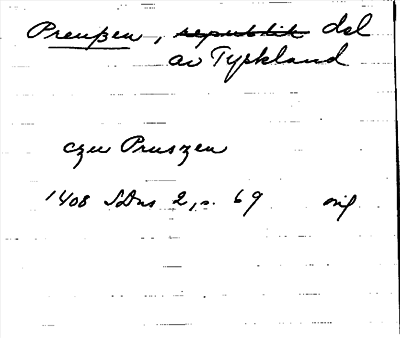 Preußen, republik del
av Tyskland
czu Pruszen
1408 SDns 2, s. 69 orig